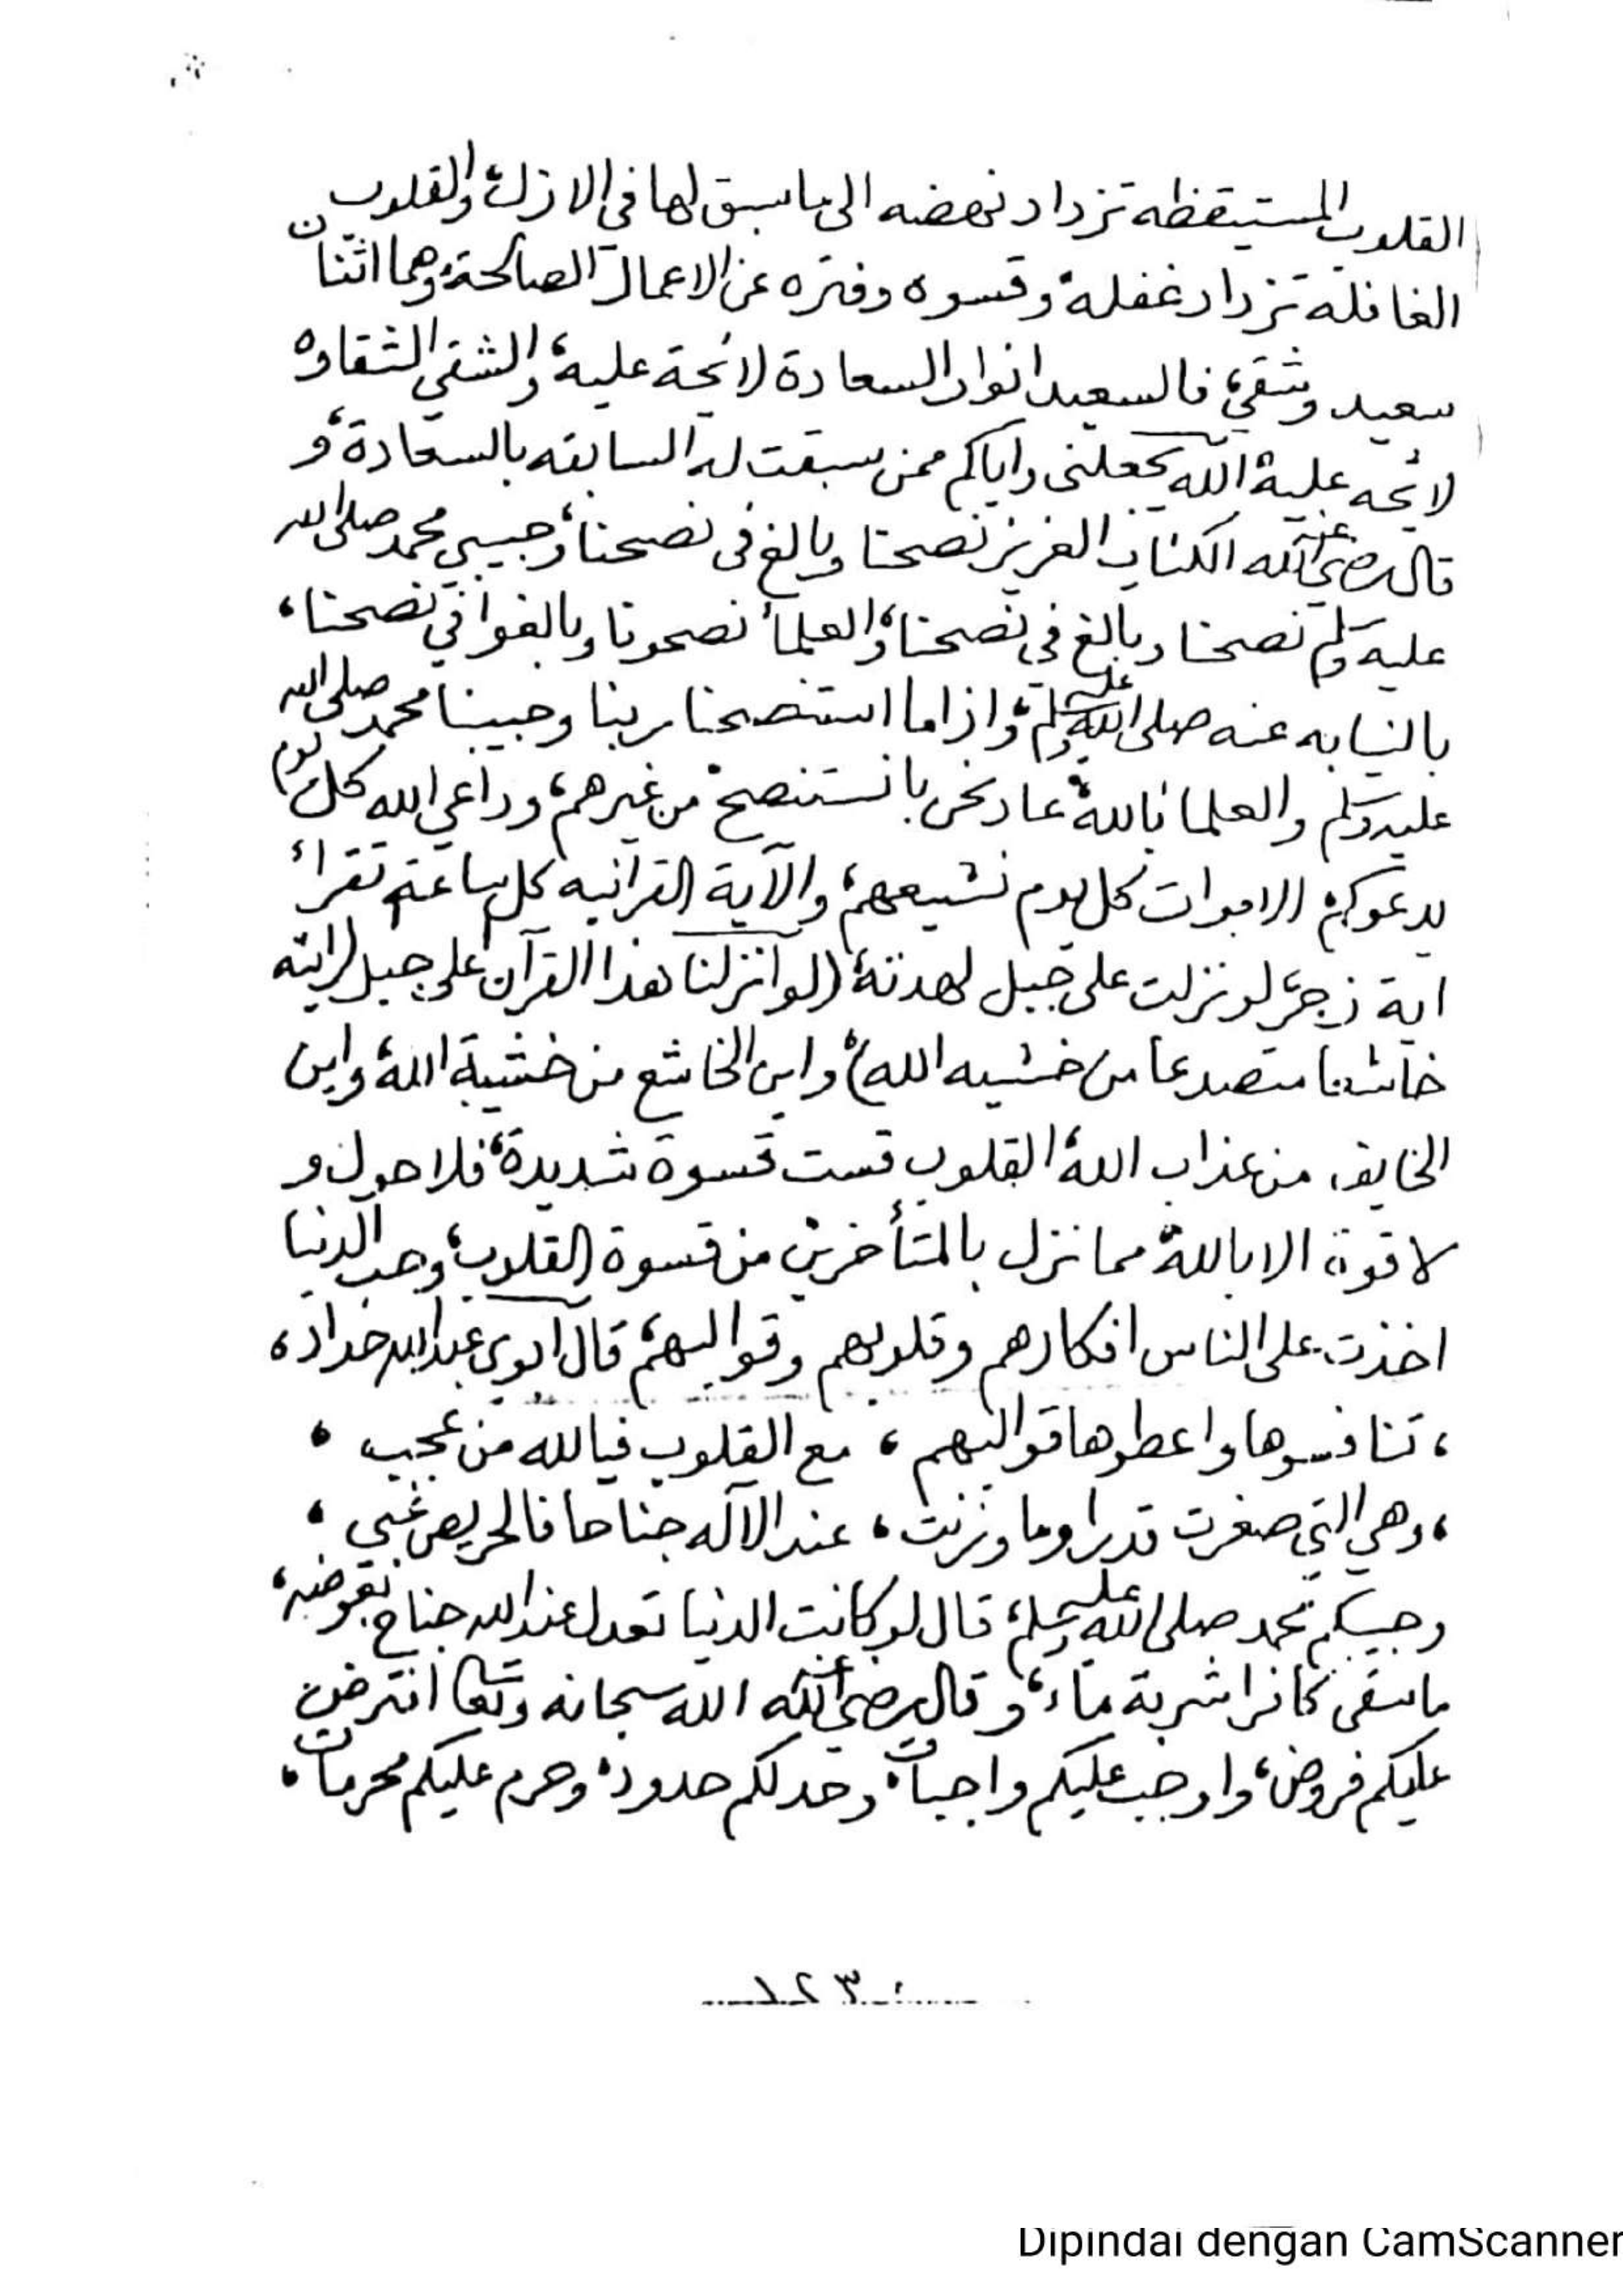 القلوب المستيقظه تزداد نهضه الى ما سبق لها في الازل، والقلوب
الغافله تزداد غفله، وقسوه وفتره عن الاعمال الصالحة، وهما اثنان
سعيد وشقي، فالسعيد انوار السعادة لائحة عليه، والشقي الشقاوه
لائحه عليه، الله يجعلني واياكم ممن سبقت له السابقه بالسعادة، و
قال رضي الله عنه الكتاب العزيز نصحنا وبالغ في نصحنا، وحبيبي محمد صلى الله
عليه وسلم نصحنا وبالغ في نصحنا، والعلمأ نصحونا وبالغوا في نصحنا،
بالنيابه عنه صلى الله عليه وسلم، واذا ما استنصحنا بربنا وحبيبنا محمد صلى الله
عليه وسلم والعلما بالله، عاد نحن با نستنصح من غيرهم، وداعي الله كل يوم
يدعوكم، الاموات كل يوم نشيعهم، والآية القرانيه كل ساعة تقراء
اية زجر، لو نزلت على جبل لهدته، (لو أنزلنا هذا القرآن على جبل لرايته
خاشعا متصدعا من خشيه الله)، واين الخاشع من خشية الله، واين
الخايف من عذاب الله، القلوب قست قسوة شديدة، فلا حول و
لا قوة الا بالله، مما نزل بالمتأخرين من قسوة القلوب، وحب الدنيا
اخذت على الناس افكارهم وقلوبهم وقوالبهم، قال ابوي عبدالله حداد،
، تنافسوها واعطوها قوالبهم ، مع القلوب فيالله من عجب ،
، وهي التي صغرت قدرا وما وزنت ، عند الاله جناحا فالحريص غبي ،
وحبيبكم محمد صلى الله عليه وسلم، قال لو كانت الدنيا تعدل عند الله جناح بعوضه،
ما سقى كافرا شربة ماء، وقال رضي الله عنه الله سبحانه وتعالى افترض
عليكم فروض، واوجب عليكم واجبات، وحد لكم حدود، وحرم عليكم محرمات،
١٢٣
Dipindai dengan CamScanner